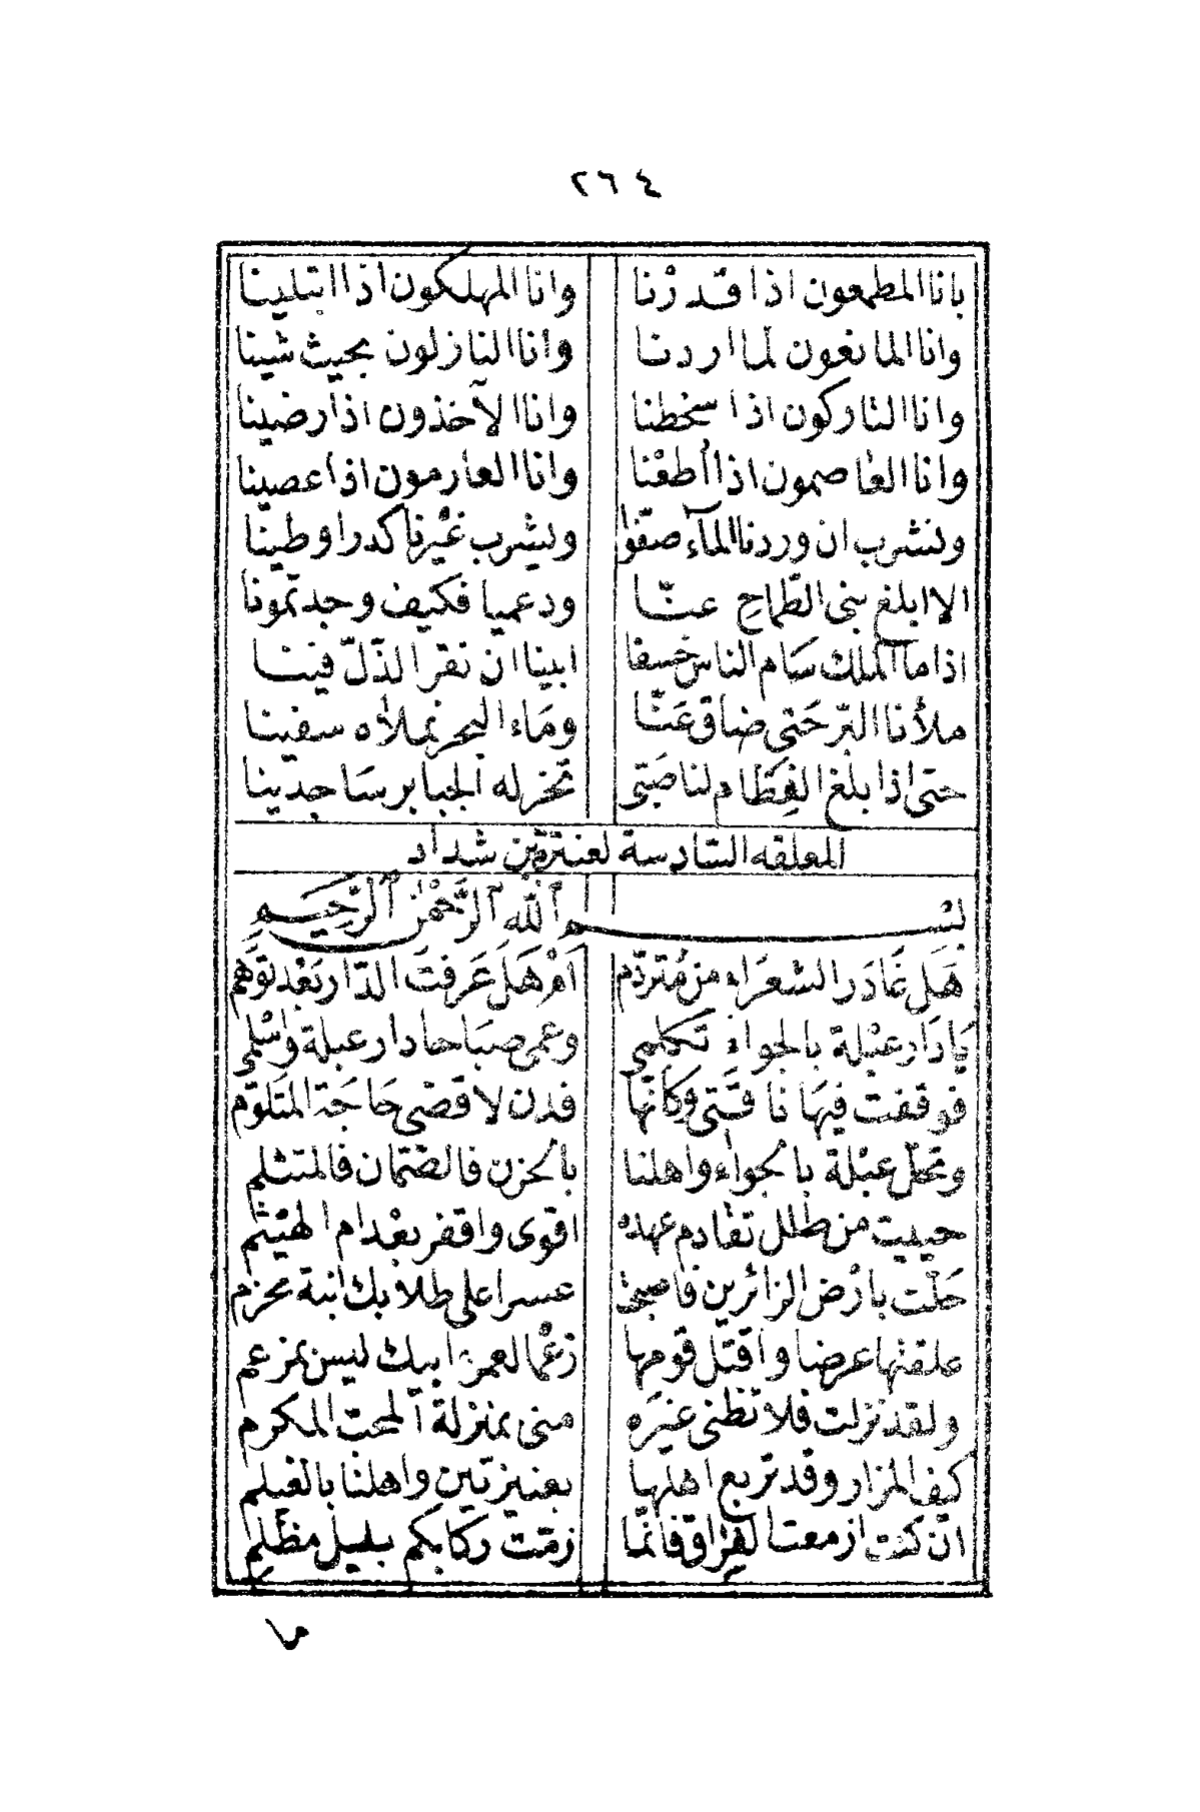 ٢٦٤
بانا المطعمون اذا قدرنا وانا المهلكون اذا ابتلينا
وانا المانعون لما اردنا وانا النازلون بحيث شينا
وانا التاركون اذا سخطنا وانا الآخذون اذا رضينا
وانا العاصمون اذا اطعنا وانا العارمون اذا عصينا
ونشرب ان وردنا المآء صفوا ويشرب غيرنا كدرا وطينا
الا ابلغ بنى الطّماحِ عنّا ودعميا فكيف وجدتّمونا
اذا ما الملك سَام الناس خسفا ابينا ان نقر الذّلّ فينا
ملأنا البرّ حَتى ضاق عَنّا ومَاء البحر نملاه سفينا
حتى اذا بلغ الفِطَام لنا صَبى تخر له الجبابر سَاجدينا
المعلقه السّادسة لعنترة بن شداد
بسم ٱلله ٱلرَّحْمٰن ٱلرَّحِيم
هَل غَادَر الشعَراء من مُتردّم اَمْ هَل عَرفتَ الدّار بَعْد توَهّم
يَا دَار عبْلة بالجواء تكلمى وعمى صبَاحا دار عبلة وٱسْلمى
فوقفت فيهَا ناقتى وكَانّها فدن لاقضى حَاجَة المتَلوّم
وتحلّ عبْلة بالجواء واهلنا بالحزن فالصّمان فالمتثلم
حييت من طلل تقادم عهده اقوى واقفر بعْد ام الهيْثم
حَلّت بارْض الزائرين فاصبحت عسرا على طلابك ابنة محزم
علقتها عرضا واقتل قومها زعْما لعمر ابيك ليسَ بمزعم
ولقد نزلت فلا تظنى غيرَه منى بمنزلة المحبّ المكرم
كيف المزار وقد تربع اهلها بعنيزتين واهلنا بالغيلم
ان كنت ازمعت الفِرَاق فانّما زمّت ركابكم بليل مظلِم
ما